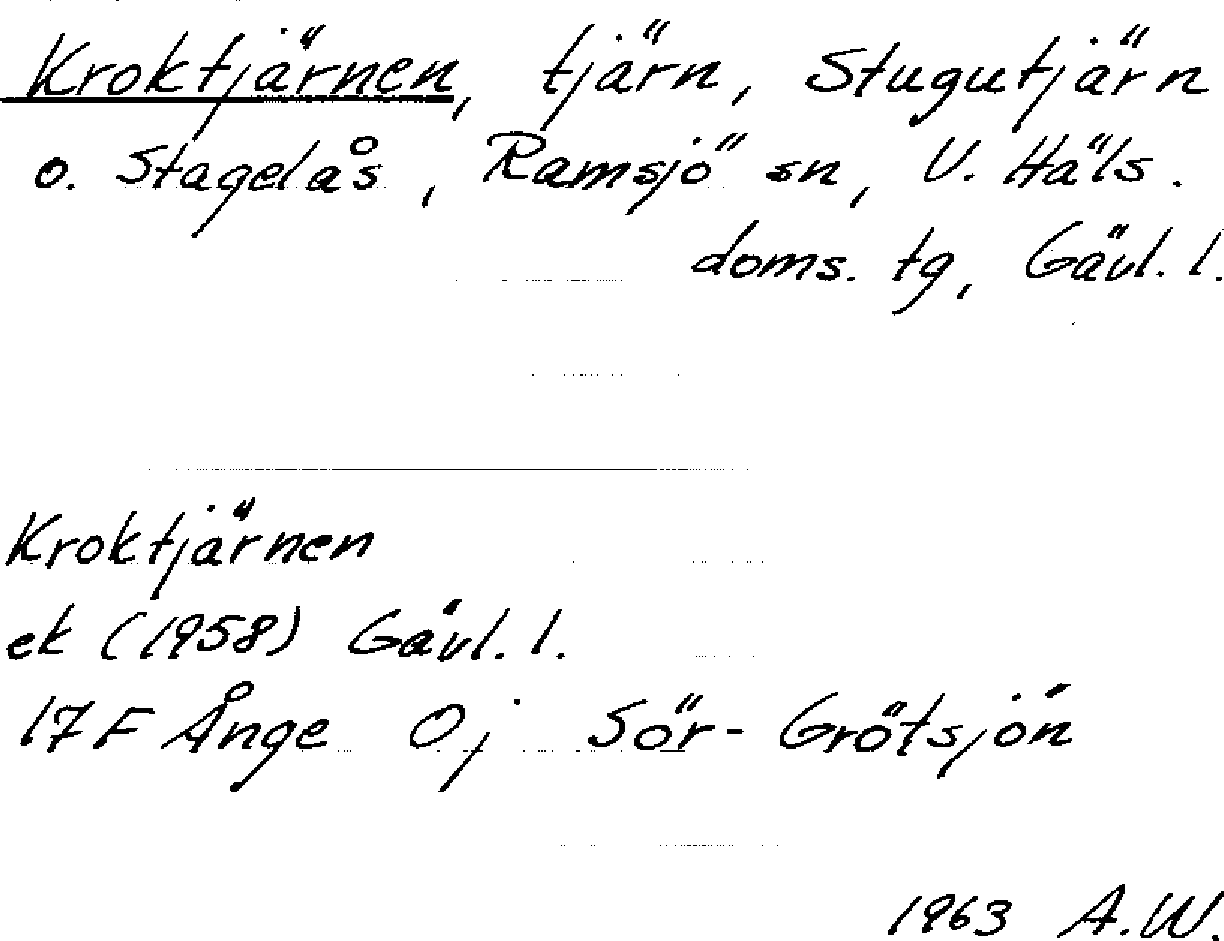 Kroktjärnen, tjärn, Stugutjärn
o. Stagelås, Ramsjö sn, V. Häls.
doms. tg, Gävl. l.
Kroktjärnen
ek (1958) Gävl. l.
17F Ånge 0j Sör-Grötsjön
1963 A.W.